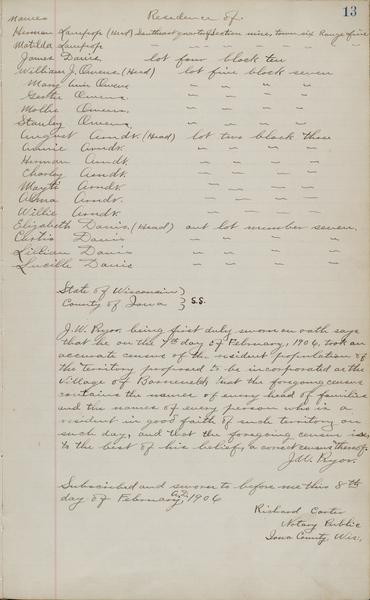 13
Names Residence of.
Herman Lampop (Head) Southeast quarter Section nine, town six Range five
Matilda Lampop " " " " "
James Davis, lot four block ten
William J. Owens. (Head) lot five block seven
Mary Ann Owens " " " "
Gertie Owens. " " " "
Mollie Owens. " " " "
Stanley Owens. " " " "
August Arndt. (Head) lot two block three
Annie Arndt. " " " "
Herman Arndt. " " " "
Charley Arndt. " " " "
Arndt. " " " "
Alma Arndt. " " " "
Willie Arndt. " " " "
Elizabeth Davis. (Head) out lot number seven.
Curtis Davis " " " "
Lillian Davis " " " "
Lucille Davis " " " "
State of Wisconsin }
County of Iowa } S.S.
J.W. Pryor, being first duly sworn on oath says
that he on the 7th day of February, 1906, took an
accurate census of the resident population of
the territory proposed to be incorporated as the
Village of Barneveld, that the foregoing census
contains the names of every head of families
and the names of every person who is a
resident in good faith of such territory on
such day, and that the foregoing census is,
to the best of his belief, a correct census thereof.
J.W. Pryor.
Subscribed and sworn to before me this 8th
day of February A.D. 1906
Richard Carter
Notary Public
Iowa County, Wis.,